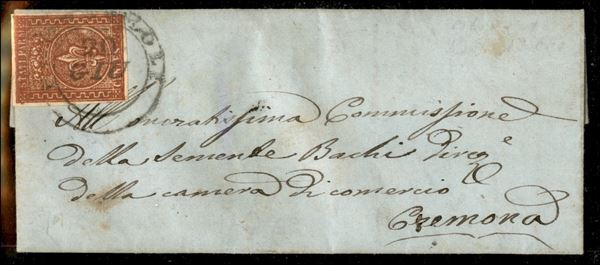 GIU
All'onoratissima Commissione
della Semente Bachi
della camera di comercio
Cremona